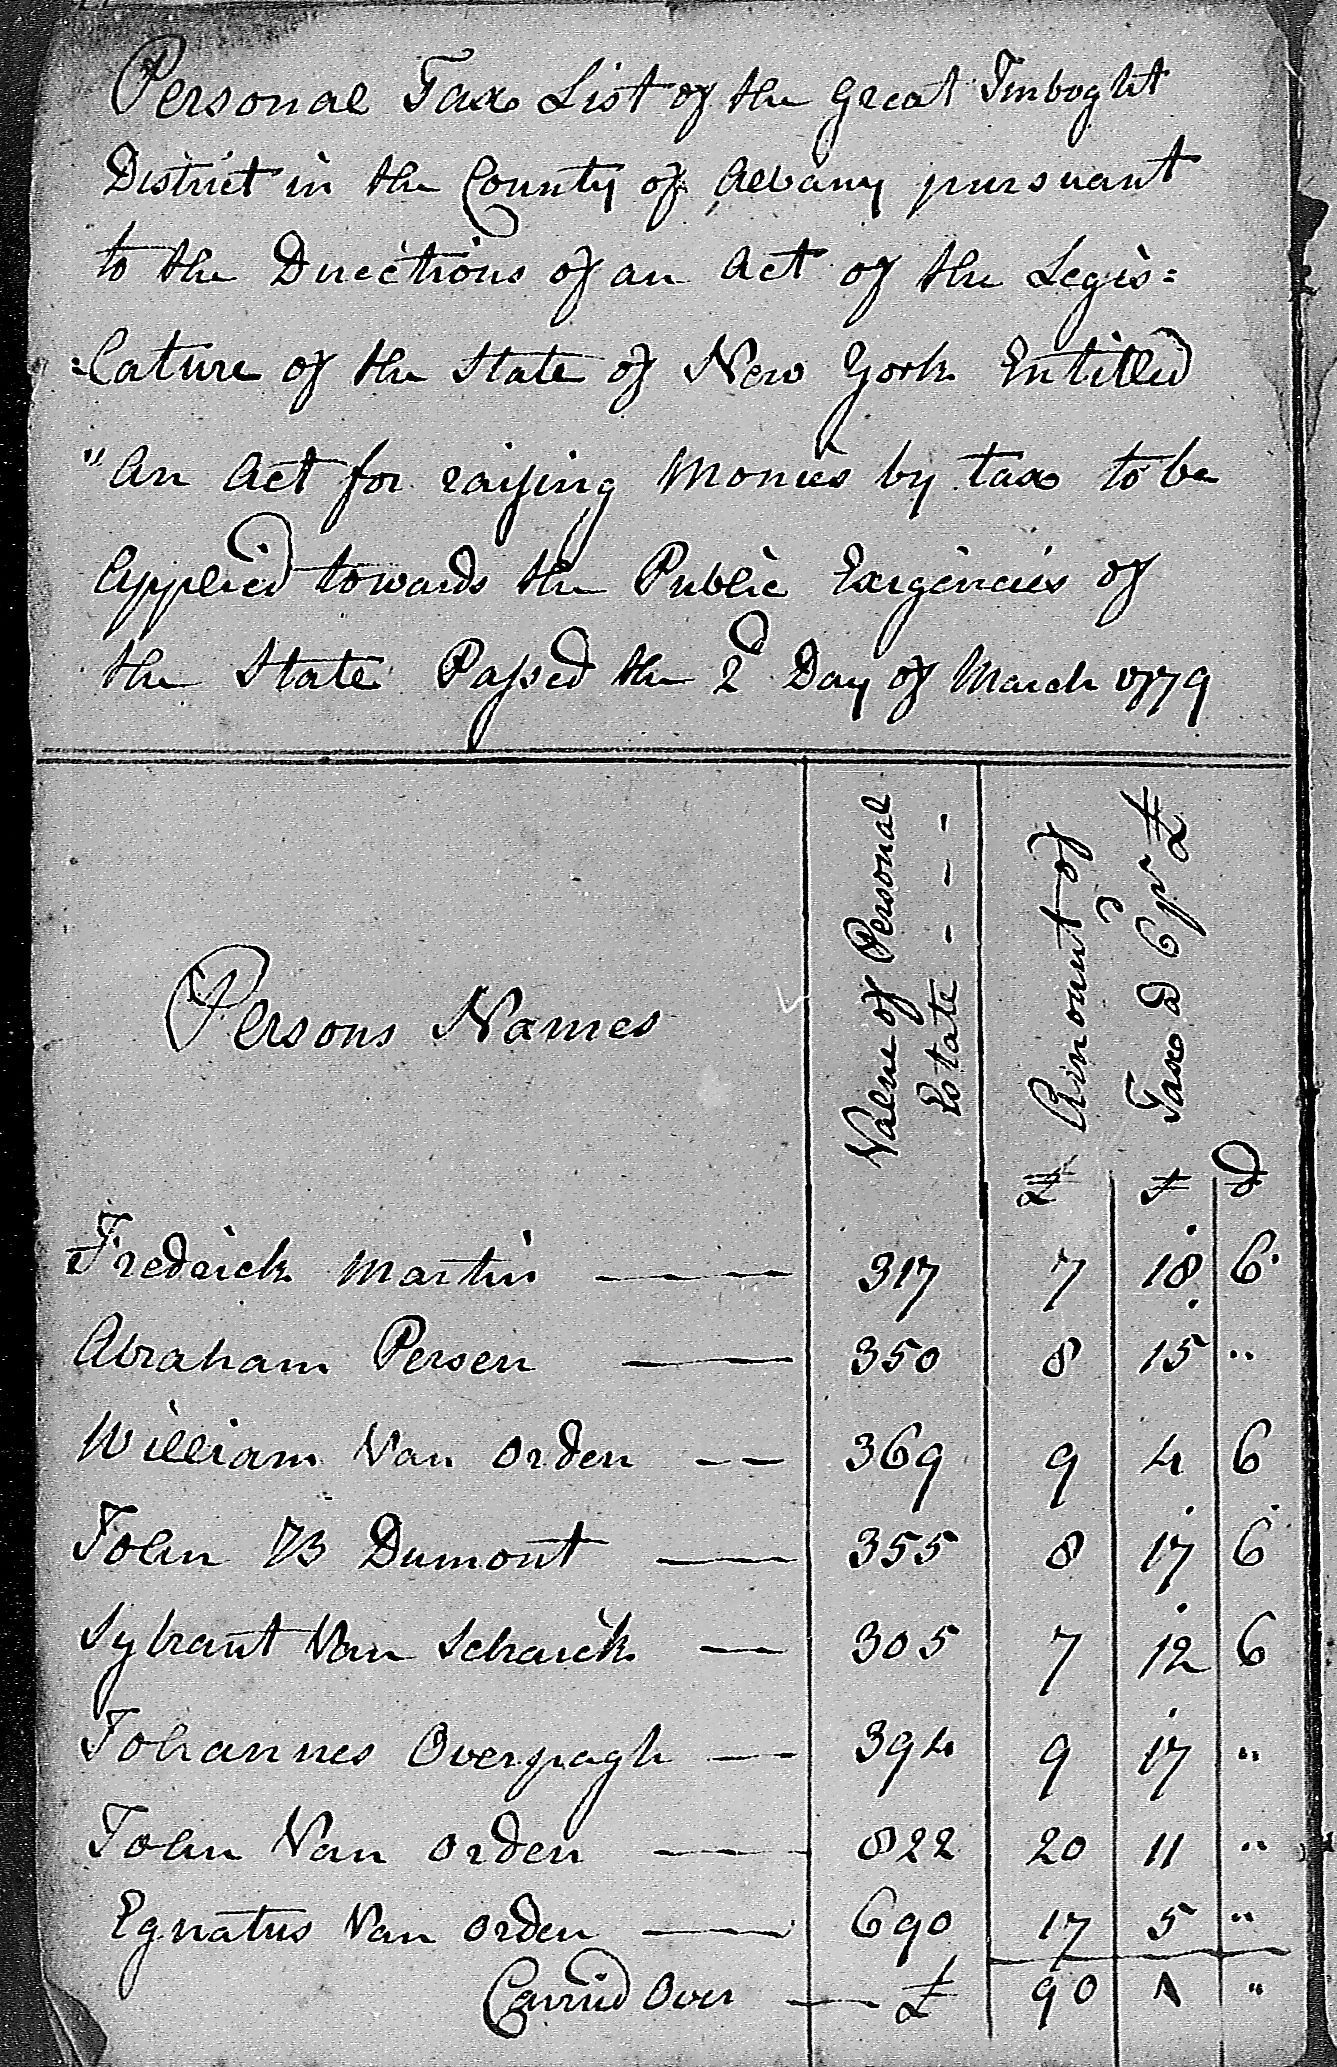 Personal Tax List of the Great Imboght
District in the County of Albany pursuant
to the Directions of an Act of the Legis=
=lature of the State of New York Entitled
"An Act for raising Monies by tax to be
Applied towards the Public Exigencies of
the State Passed the 2d Day of March 1779
Persons Names
Value of Personal
Estate - - - -
Amount of
Tax @ 6d pr £
£ D
Fredrick Martin 317 7 18 6
Abraham Persen 350 8 15 "
William Van Orden 369 9 4 6
John B Dumont 355 8 17 6
Sybrant Van Schaick 305 7 12 6
Johannes Overpagh 394 9 17 "
John Van Orden 822 20 11 "
Egnatus Van Orden 690 17 5 "
Carried Over £ 90 1 "